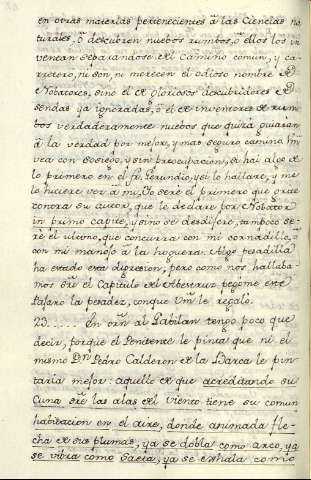 en otras materias pertenecientes a las Ciencias na
turales, ó descubren nuebos rumbos, ó ellos los in
ventan separandose del camino comun, y ca
rretero, ni son, ni merecen el odioso nombre de
Nobatores, sino el de gloriosos descubridores de
sendas ya ignoradas, ó el de inventores de rum
bos verdaderamente nuebos que quizá guiaran
a la verdad por mejor, y mas seguro camino. Vm
vea con sosiego, y sin preocupacion, si hai algo de
lo primero en el fr. Gerundio, y si lo hallare, y me
lo hiciere ver a mi, Yo seré el primero que grite
contra su autor, que le declare por Nobator
in primo capite, y sino se desdijere, tampoco se
ré el ultimo, que concurra con mi cornadillo, ó
con mi manojo a la hoguera. Algo pesadilla
ha estado esta digresion, pero como nos hallaba
mos en el Capitulo del Abestruz pegome este
Pajaro la pesadez, conque Vm le regaló.
23..... En orn al Gabilan tengo poco que
decir, porque el Penitente le pinta que ni el
mismo Dn Pedro Calderon de la Barca le pin
taria mejor: aquello de que acreditando su
Cuna entre las alas del viento tiene su comun
habitacion en el aire, donde animada fle
cha de sus plumas, ya se dobla como arco, ya
se vibra como Saeta, ya se exhala como